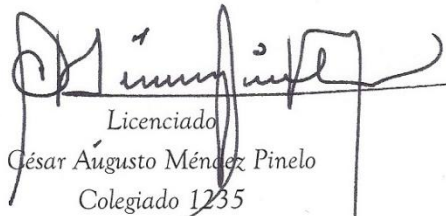 Licenciado
César Augusto Méndez Pinelo
Colegiado 1235